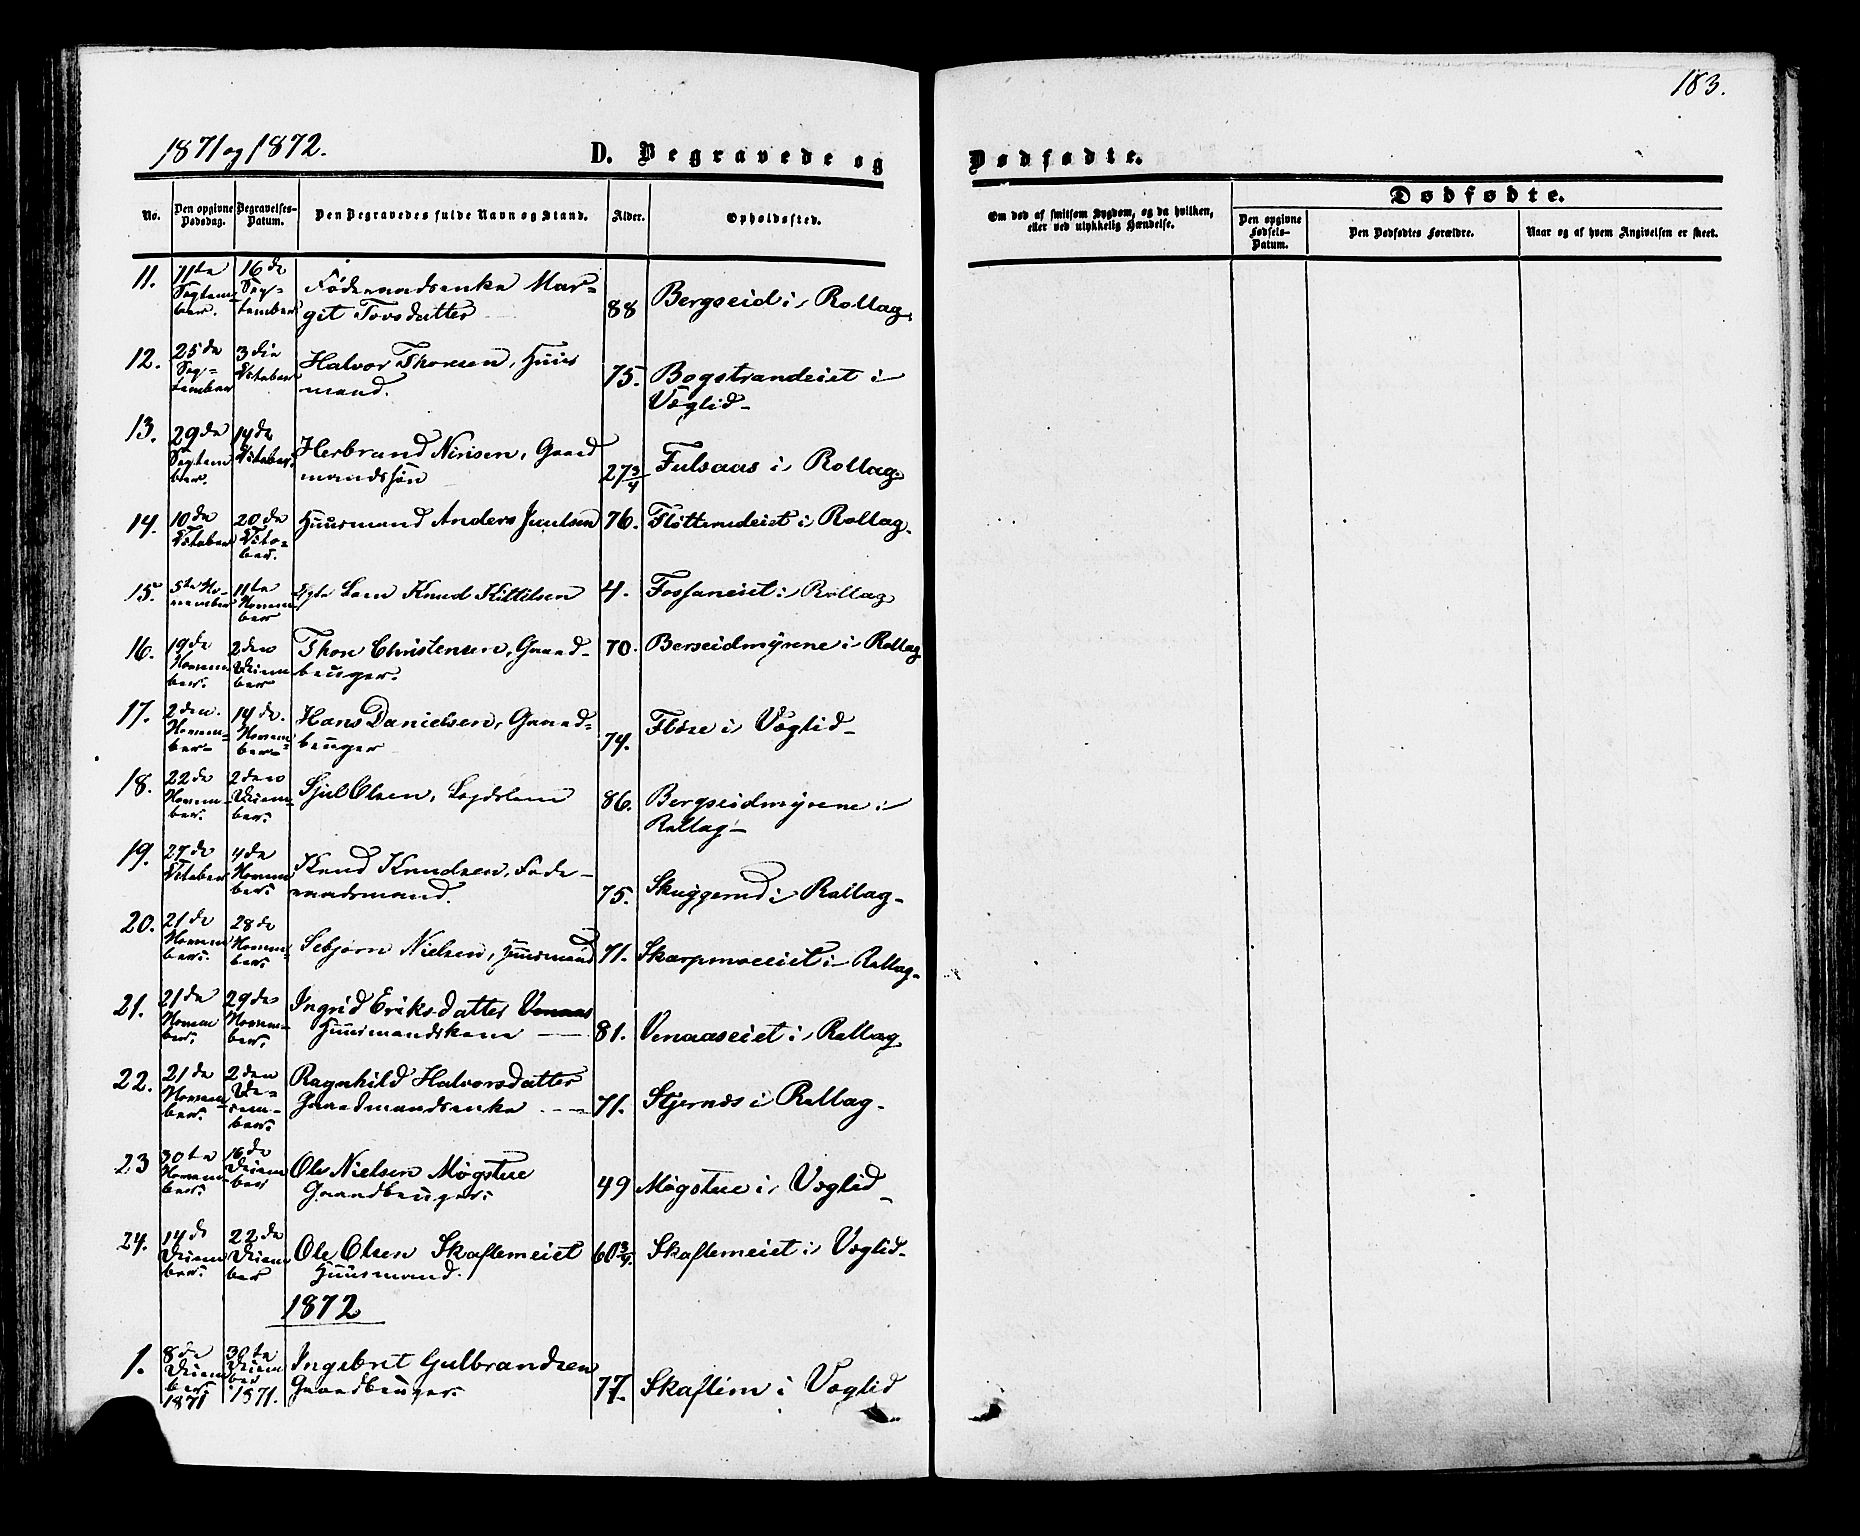 183.
1871 og 1872.
D. Begravede og Dødfødte.
No. Den opgivne Dødsdag. Begravelses-Datum. Den Begravedes fulde Navn og Stand. Alder. Opholdssted. Om død af smitsom Sygdom, og da hvilken, eller ved ulykkelig Hændelse. Dødfødte. Den opgivne Fødsels-Datum. Den Dødfødtes Forældre. Naar og af hvem Angivelsen er skeet.
11. 11te September. 16de September Føderaadsenke Margit Tovsdatter 88 Bergseid i Rollag.
12. 25de September 3die October Halvor Thorsen, Huusmand. 75. Bogstrandeiet i Væglid
13. 29de September. 14de October. Herbrand Nirisen, Gaardmandssøn 27 3/4 Fulsaas i Rollag.
14. 10de October 20de October. Huusmand Anders Juulsen 76. Fløtterudeiet i Rollag.
15. 5te November 11te November Ægte Barn Knud Kittilsen 4. Fossaneiet i Rollag
16. 19de November. 2den December Thor Christensen, Gaardbruger. 70. Berseidmyrene i Rollag
17. 2den November 14de November Hans Danielsen, Gaardbruger 74. Fløse i Væglid
18. 22de November. 2den December. Sjul Olsen, Lægdslem 86. Bergseidmyrene i Rollag
19. 27de October 4de November. Knud Knudsen, Føderaadsmand. 75. Skuggerud i Rollag
20. 21de November. 28de November. Sebjørn Nielsen, Huusmand 71. Skarpmoeiet i Rollag
21. 21de November. 29de November. Ingrid Eriksdatter Venaas Huusmandskone 81. Venaaseiet i Rollag
22. 21de November. 2den December. Ragnhild Halvorsdatter Gaardmandsenke 71. Stjernes i Rollag
23 30te November. 16de December Ole Nielsen Møgstue Gaardbruger. 49 Møgstue i Væglid
24. 14de December. 22de December Ole Olsen Skaftemeiet Huusmand. 60 3/4. Skaftemeiet i Væglid
1872
1. 8de December. 1871 30te December 1871. Ingebret Gulbrandsen Gaardbruger. 77. Skaftim i Væglid